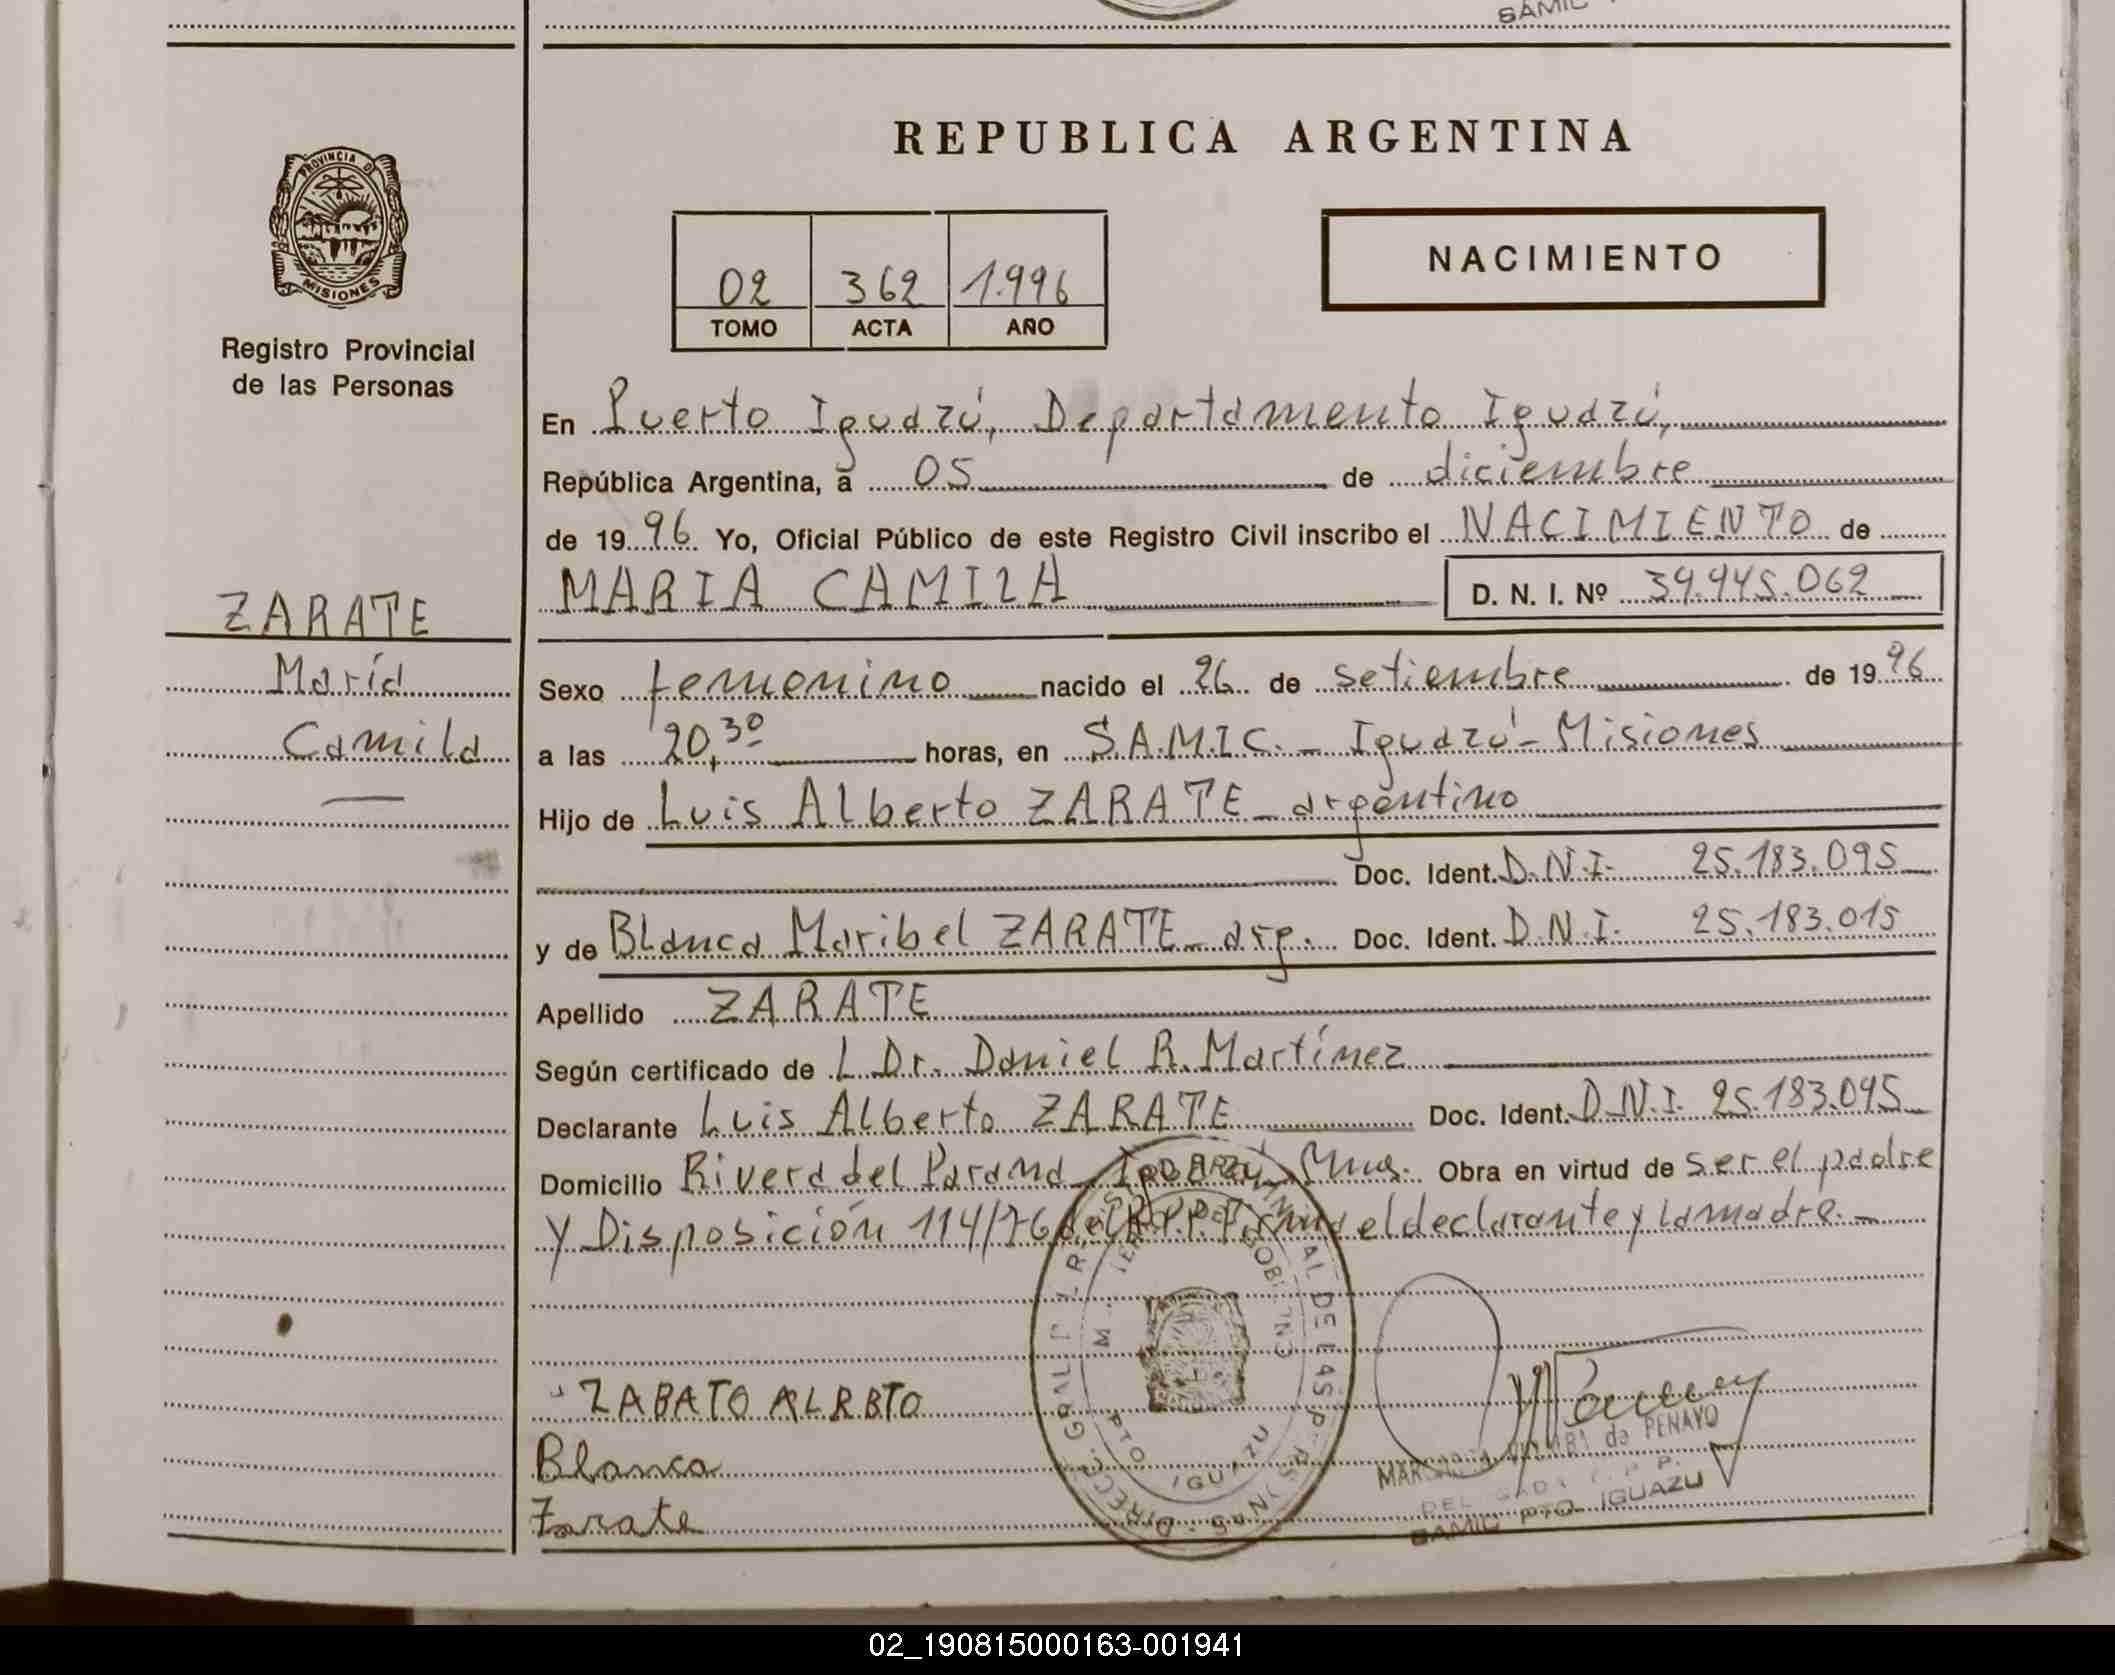 SAMIC
PROVINCIA DE
MISIONES
Registro Provincial
de las Personas
REPUBLICA ARGENTINA
02 362 1.996
TOMO ACTA AÑO
NACIMIENTO
En Puerto Iguazú, Departamento Iguazú,
República Argentina, a 05 de diciembre
de 1996 Yo, Oficial Público de este Registro Civil inscribo el NACIMIENTO de
ZARATE
María
Camila
MARIA CAMILA D. N. I. Nº 39.945.062
Sexo femenino nacido el 26 de setiembre de 1996
a las 20,30 horas, en S.A.M.I.C. - Iguazú - Misiones
Hijo de Luis Alberto ZARATE - argentino
Doc. Ident. D.N.I. 25.183.095
y de Blanca Maribel ZARATE - arg. Doc. Ident. D.N.I. 25.183.015
Apellido ZARATE
Según certificado de L Dr. Daniel R. Martínez
Declarante Luis Alberto ZARATE Doc. Ident. D.N.I. 25.183.095
Domicilio Rivera del Paraná - Iguazú Mnes. Obra en virtud de ser el padre
y Disposición 114/76 del R.P.P. Firma el declarante y la madre. -
ZABATO ALRBTO
Blanca
Zarate
DE LAS PERSONAS
IGUAZU
de PENAYO
SAMIC PTO. IGUAZU
02_190815000163-001941